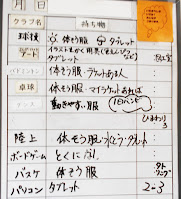 クラブ名 持ち物
球技 体そう服 タブレット
アート イラストをかく用具(えんぴつなど) タブレット 図工室
バドミントン 体そう服・ラケットある人
卓球 体そう服・マイラケットあれば
ダンス 動きやすい服 1日バンド
ひまわり3
陸上 体そう服・タブレット
ボードゲーム とくになし
バスケ 体そう服
パソコン タブレット 2-3